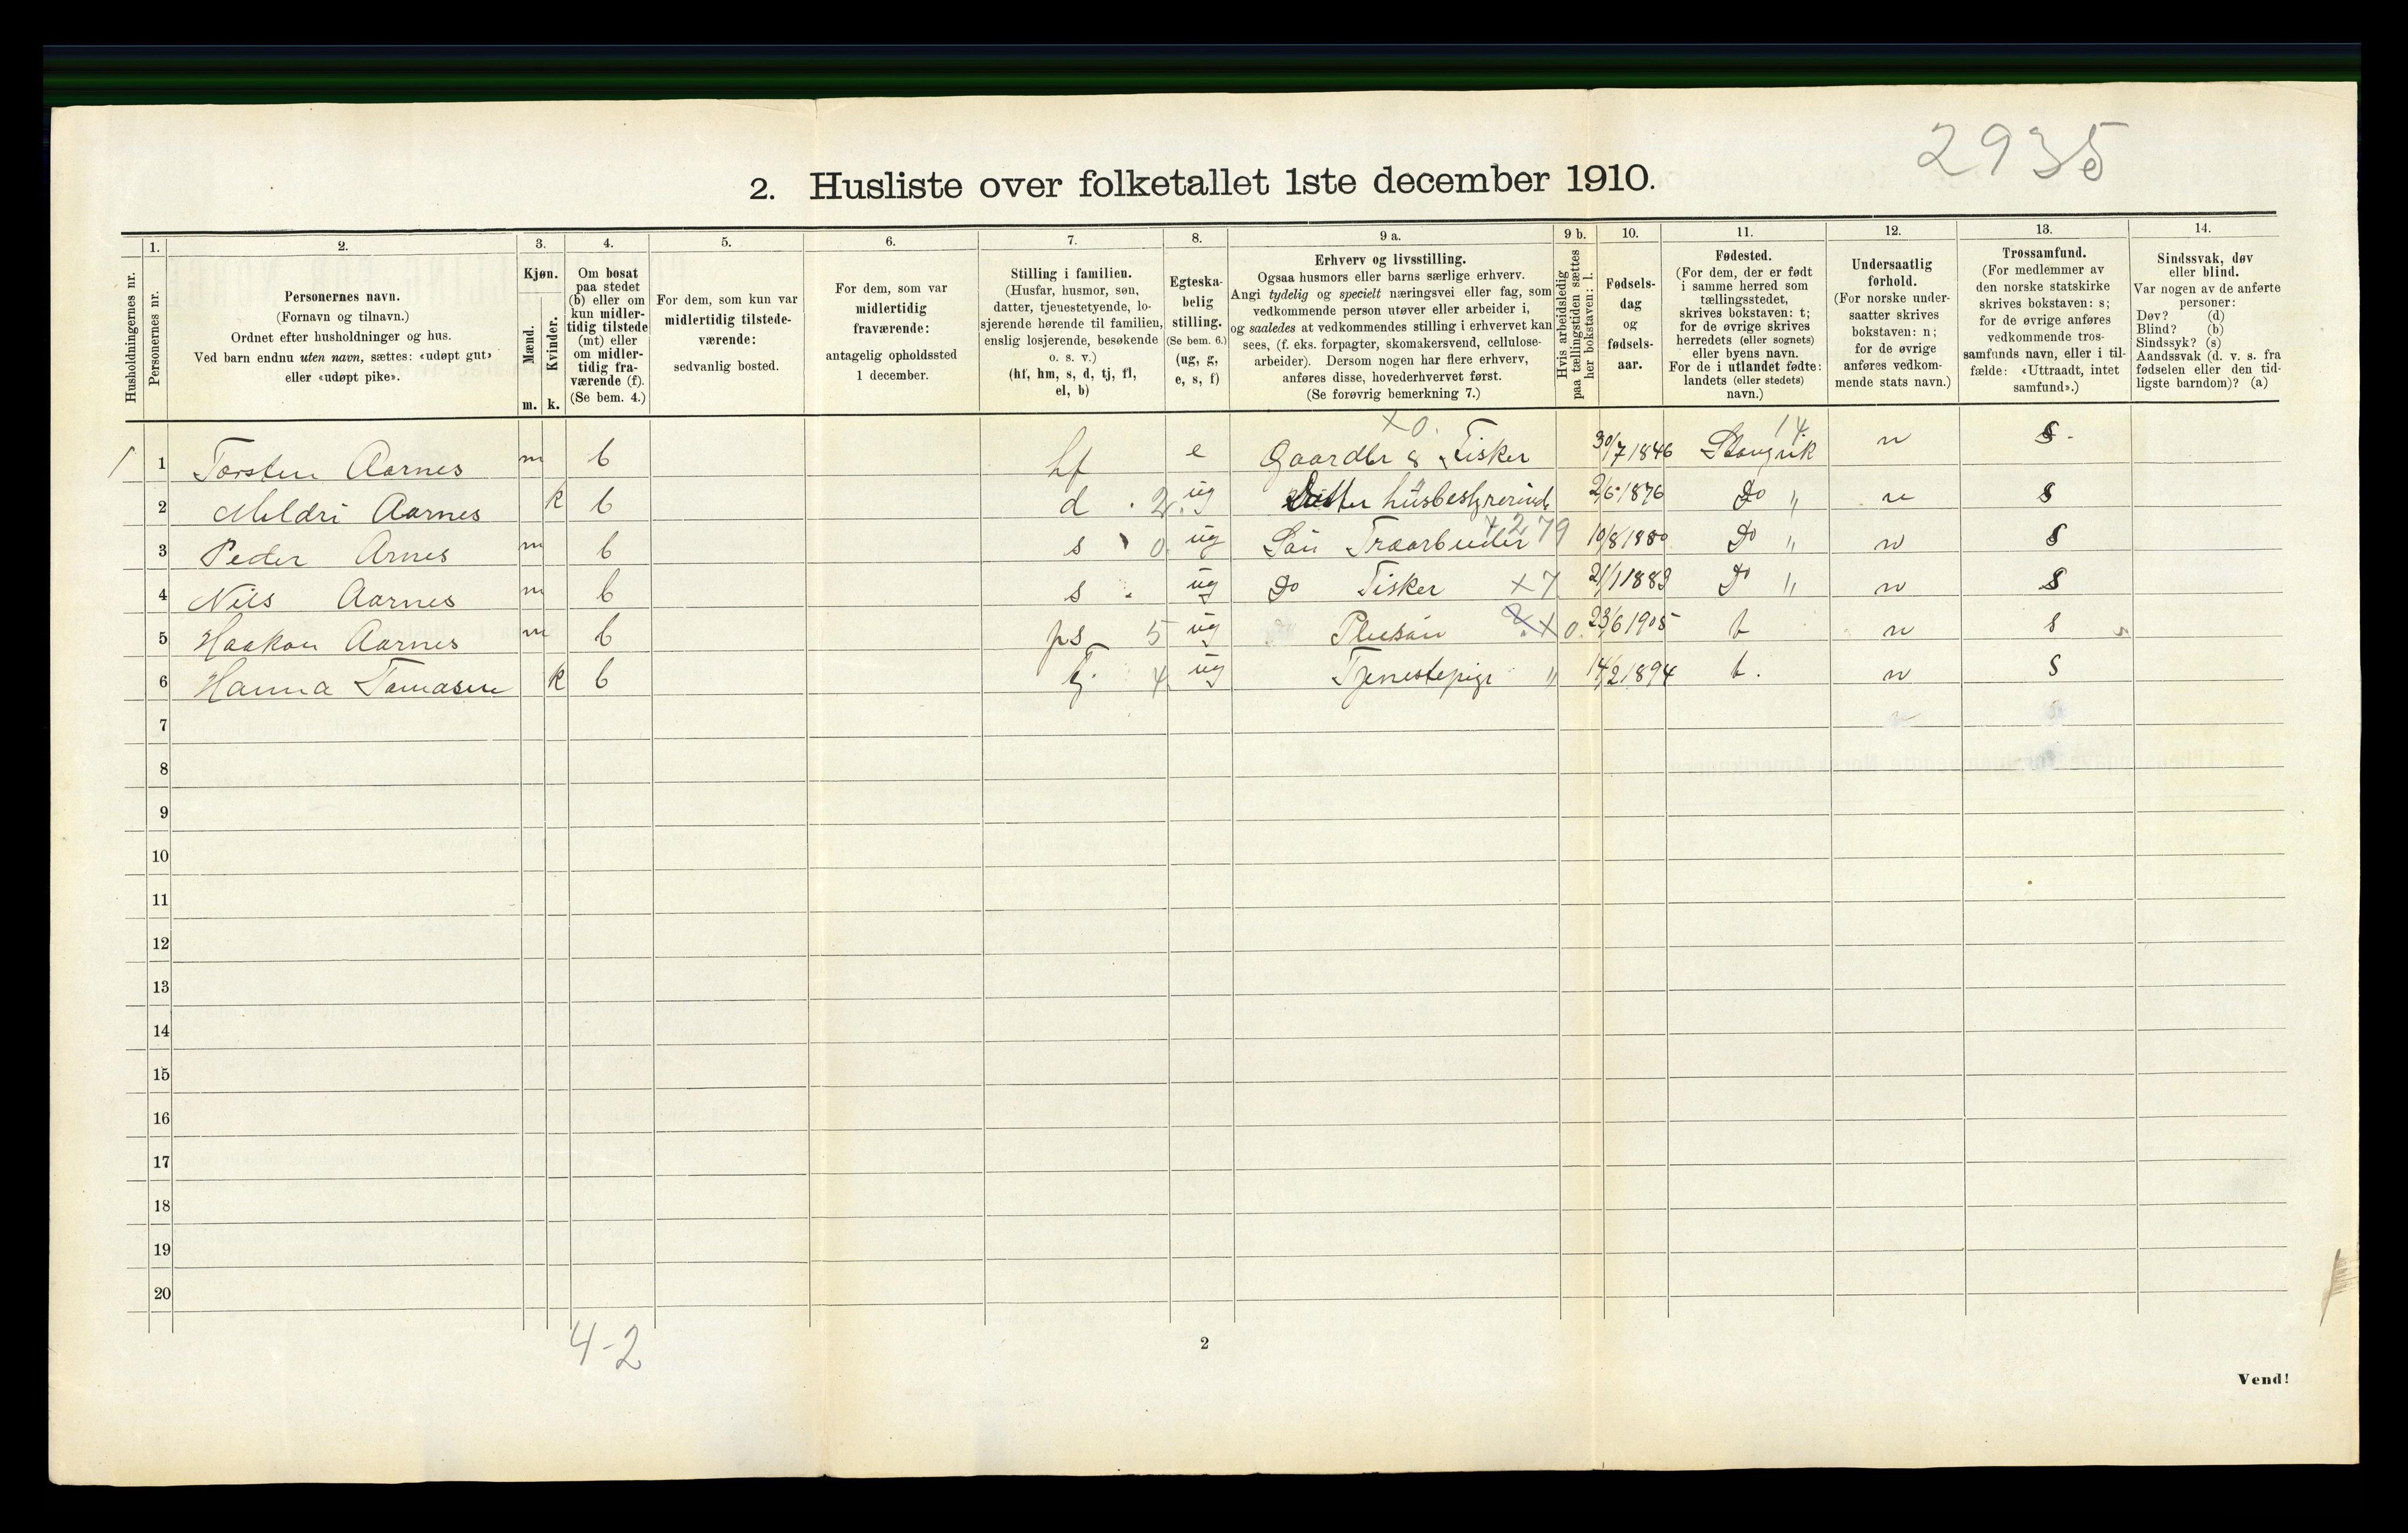 2935
2. Husliste over folketallet 1ste december 1910.
Husholdningernes nr.
1. Personernes nr.
2. Personernes navn.
(Fornavn og tilnavn.)
Ordnet efter husholdninger og hus.
Ved barn endnu uten navn, sættes: «udøpt gut»
eller «udøpt pike».
3. Kjøn.
Mænd. Kvinder.
m. k.
4. Om bosat
paa stedet
(b) eller om
kun midler-
tidig tilstede
(mt) eller
om midler-
tidig fra-
værende (f).
(Se bem. 4.)
5. For dem, som kun var
midlertidig tilstede-
værende:
sedvanlig bosted.
6. For dem, som var
midlertidig
fraværende:
antagelig opholdssted
1 december.
7. Stilling i familien.
(Husfar, husmor, søn,
datter, tjenestetyende, lo-
sjerende hørende til familien,
enslig losjerende, besøkende
o. s. v.)
(hf, hm, s, d, tj, fl,
el, b)
8. Egteska-
belig
stilling.
(Se bem. 6.)
(ug, g,
e, s, f)
9 a. Erhverv og livsstilling.
Ogsaa husmors eller barns særlige erhverv.
Angi tydelig og specielt næringsvei eller fag, som
vedkommende person utøver eller arbeider i,
og saaledes at vedkommendes stilling i erhvervet kan
sees, (f. eks. forpagter, skomakersvend, cellulose-
arbeider). Dersom nogen har flere erhverv,
anføres disse, hovederhvervet først.
(Se forøvrig bemerkning 7.)
9 b. Hvis arbeidsledig
paa tællingstiden sættes
her bokstaven: l.
10. Fødsels-
dag
og
fødsels-
aar.
11. Fødested.
(For dem, der er født
i samme herred som
tællingsstedet,
skrives bokstaven: t;
for de øvrige skrives
herredets (eller sognets)
eller byens navn.
For de i utlandet fødte:
landets (eller stedets)
navn.)
12. Undersaatlig
forhold.
(For norske under-
saatter skrives
bokstaven: n;
for de øvrige
anføres vedkom-
mende stats navn.)
13. Trossamfund.
(For medlemmer av
den norske statskirke
skrives bokstaven: s;
for de øvrige anføres
vedkommende tros-
samfunds navn, eller i til-
fælde: «Uttraadt, intet
samfund».)
14. Sindssvak, døv
eller blind.
Var nogen av de anførte
personer:
Døv? (d)
Blind? (b)
Sindssyk? (s)
Aandssvak (d. v. s. fra
fødselen eller den tid-
ligste barndom)? (a)
x0. 14
1 1 Torsten Aarnes m b hf e Gaardbr & Fisker 30/7 1846 Stangvik n s
2 Meldri Aarnes k b d 2 ug Datter husbestyrerind 2/6 1876 Do " n s
3 Peder Arnes m b s 0 ug Sön Træarbeider +279 10/8 1880 Do " n s
4 Nils Aarnes m b s ug Do Fisker x7 21/1 1883 Do " n s
5 Haakon Aarnes m b ps 5 ug Pleisön x0 23/6 1905 t n s
6 Hanna Tomasen k b tj 4 ug Tjenestepige " 14/2 1894 t. n s
7
8
9
10
11
12
13
14
15
16
17
18
19
20
4-2
2
Vend!